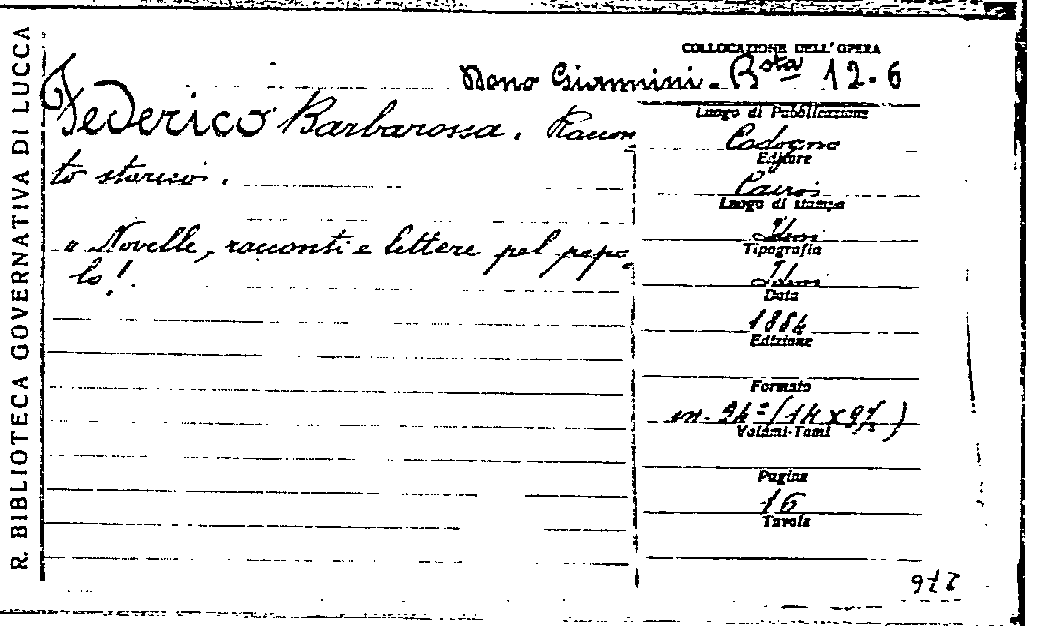 R. BIBLIOTECA GOVERNATIVA DI LUCCA
COLLOCAZIONE DELL'OPERA
Dono Giannini - Bsta 12.6
Federico Barbarossa. Raccon
to storico.
"Novelle, racconti e lettere pel popo-
lo".
Luogo di Pubblicazione
Codogno
Editore
Cairo
Luogo di stampa
Idem
Tipografia
Idem
Data
1884
Edizione
Formato
in-24° (14 x 9½)
Volumi-Tomi
Pagine
16
Tavole